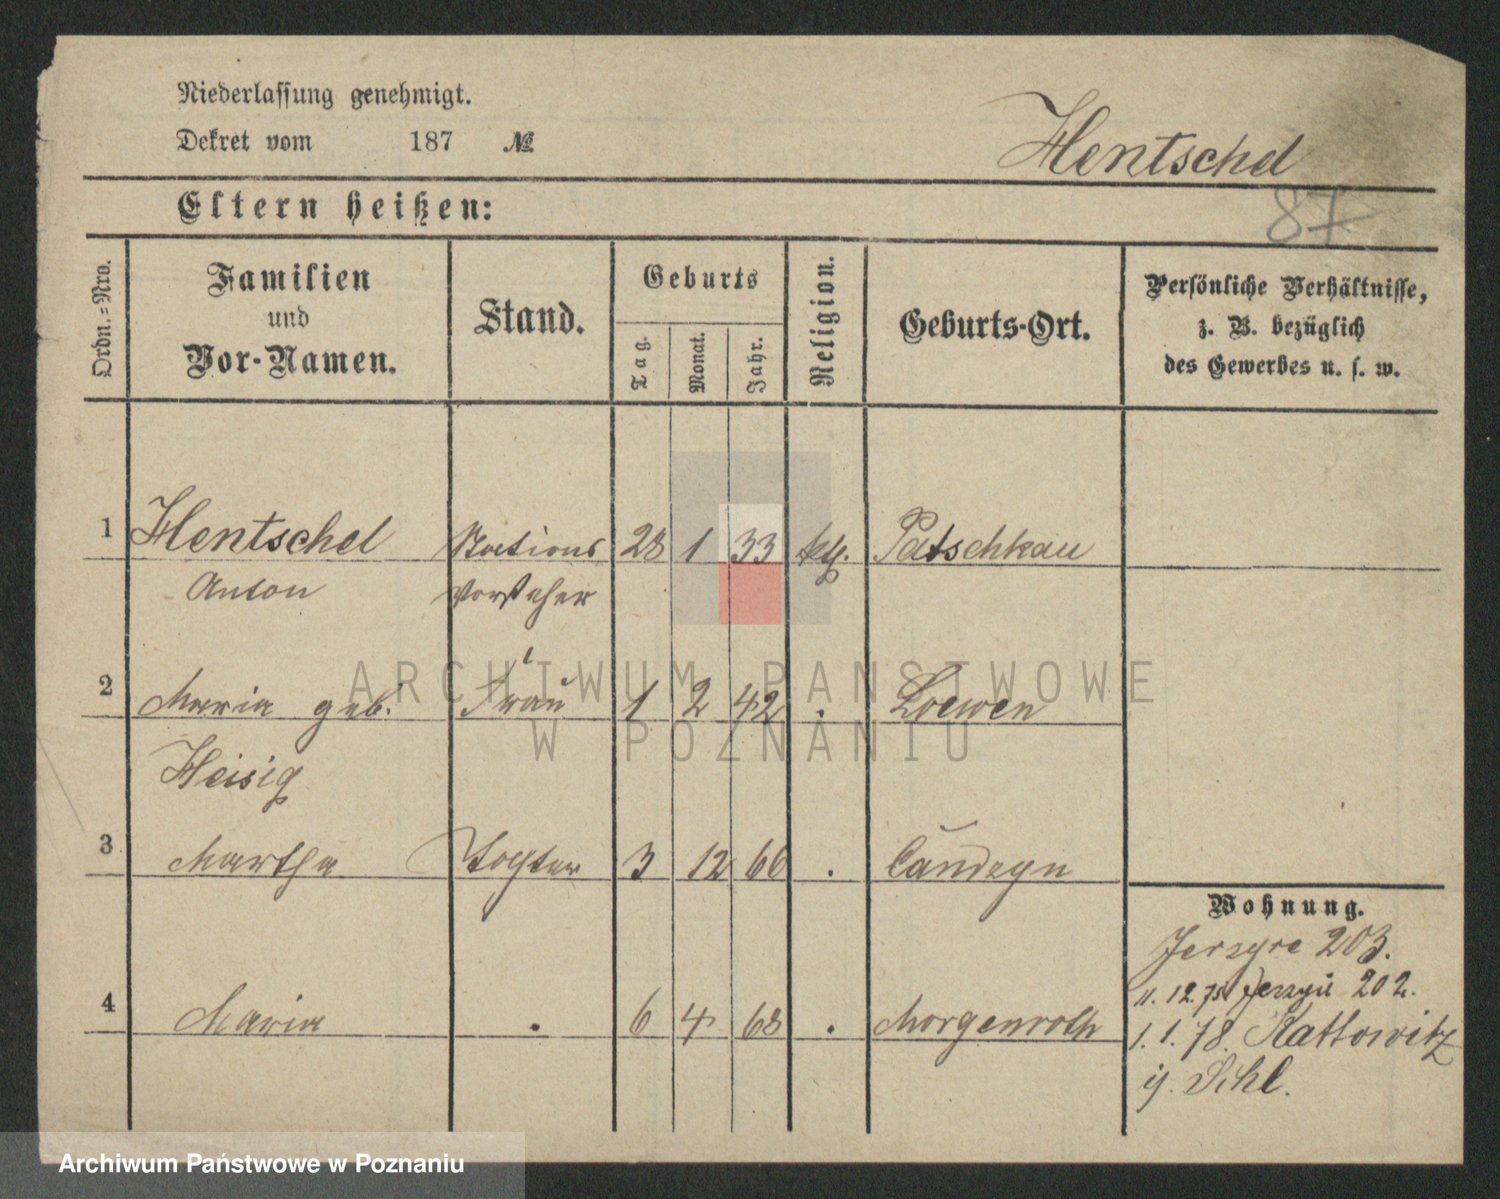 Niederlassung genehmigt.
Dekret vom 187 №
Hentschel
87
Eltern heißen:
Ordn.=Nro.
Familien
und
Vor-Namen.
Stand.
Geburts
Tag.
Monat.
Jahr.
Religion.
Geburts-Ort.
Persönliche Verhältnisse,
z. B. bezüglich
des Gewerbes u. s. w.
1 Hentschel Stations 28 1 33 kth. Patschkau
Anton vorsteher
2 Maria geb. Frau 1 2 42 . Loewen
Heisig
3 Martha Tochter 3 12 66 . Candrzyn
4 Maria . 6 4 68 . Morgenroth
Wohnung.
Jerzyce 203.
11. 12. 75 Jerzyce 202.
1. 1. 78. Kattowitz
Schl.
ARCHIWUM PAŃSTWOWE
W POZNANIU
Archiwum Państwowe w Poznaniu